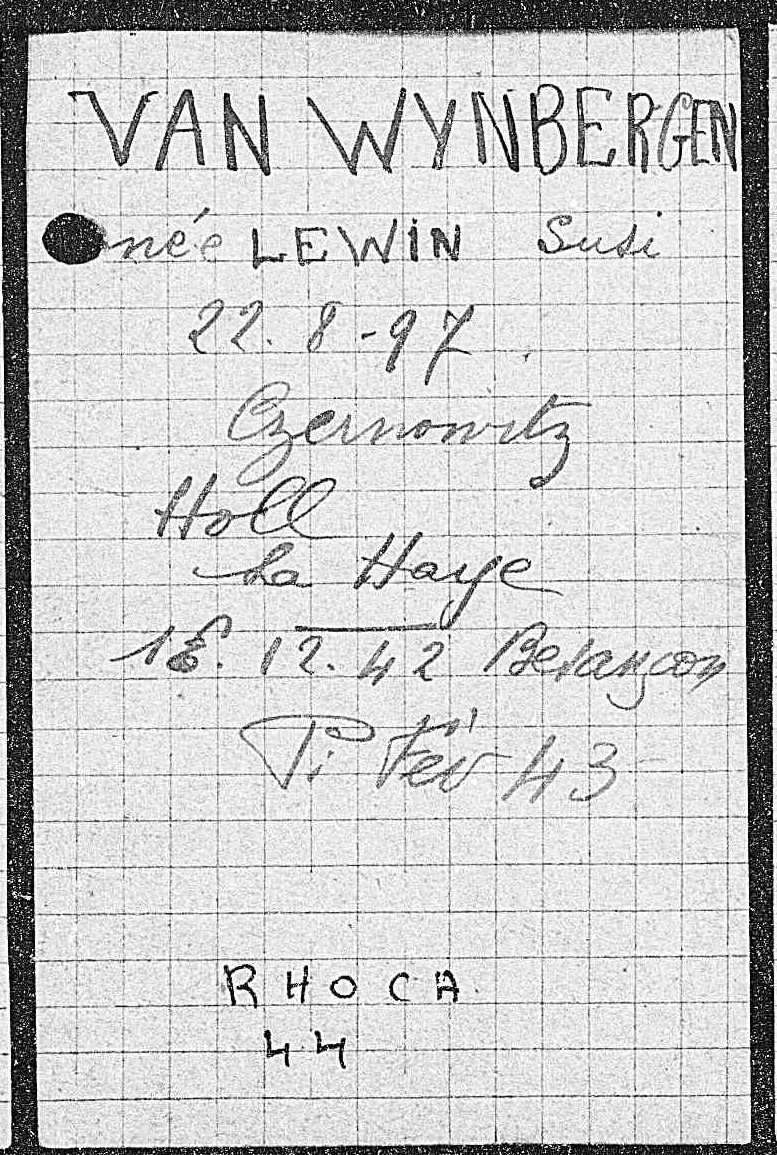 VAN WYNBERGEN
née LEWIN Susi
22.8-97.
Czernowitz
Holl
La Haye
18.12.42 Besançon
Pi Fév 43
RHOCA
44